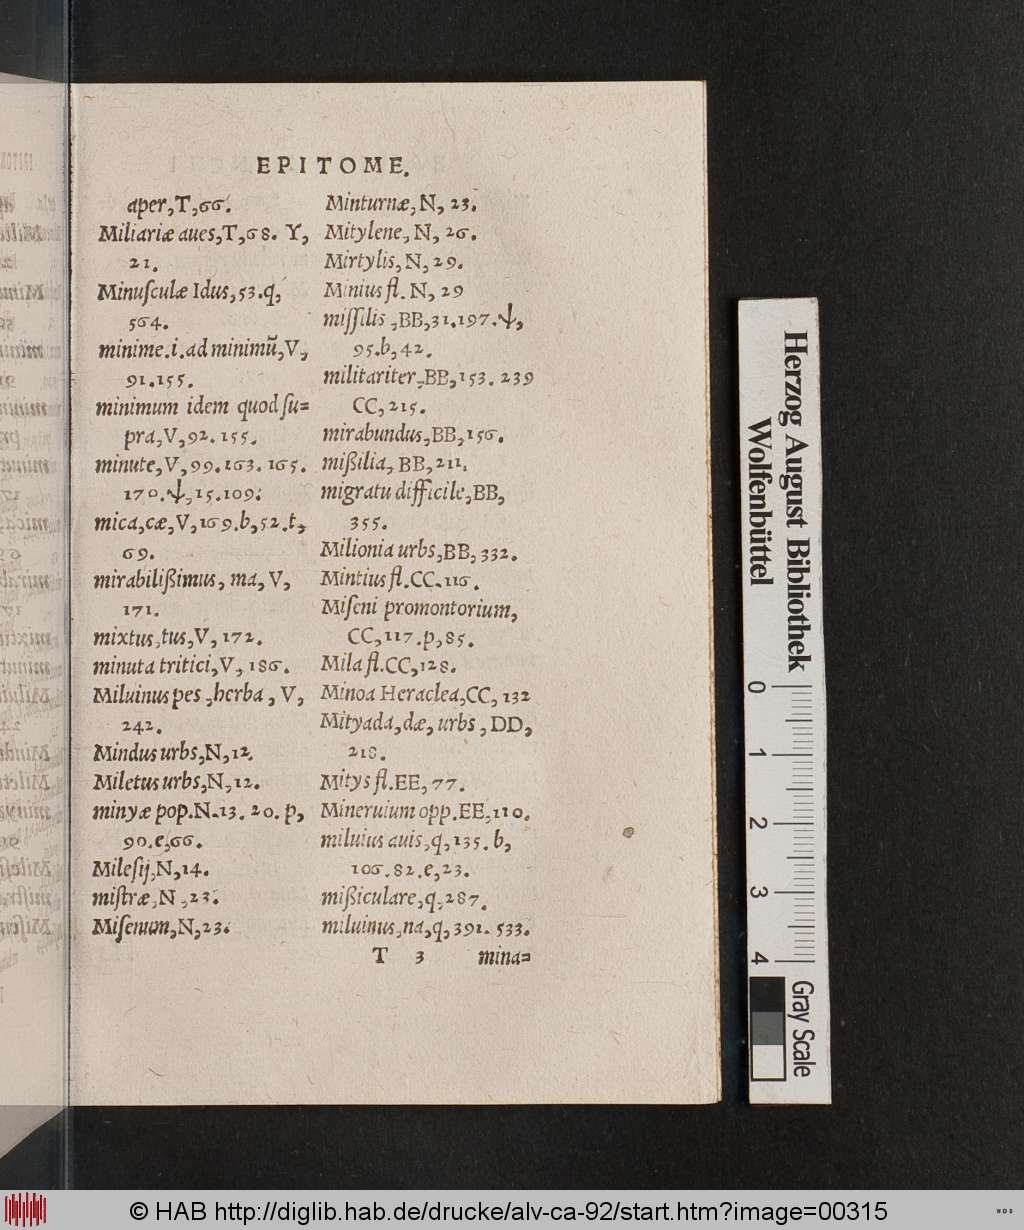 EPITOME.
aper,T,66.
Miliariæ aues,T,68. Y,
21.
Minuſculæ Idus,53.q,
564.
minime.i.ad minimũ,V,
91.155.
minimum idem quod ſu=
pra,V,92.155.
minute,V,99.163.165.
170.ψ,15.109.
mica,cæ,V,169.b,52.t,
69.
mirabilißimus, ma,V,
171.
mixtus,tus,V,172.
minuta tritici,V,186.
Miluinus pes,herba,V,
242.
Mindus urbs,N,12.
Miletus urbs,N,12.
minyæ pop.N.13. 20. p,
90.e,66.
Mileſij,N,14.
miſtræ,N,23.
Miſenum,N,23.
Minturnæ,N, 23.
Mitylene,N, 26.
Mirtylis,N,29.
Minius fl. N, 29
miſſilis,BB,31.197.ψ,
95.b,42.
militariter,BB,153. 239
CC,215.
mirabundus,BB,156.
mißilia,BB,211.
migratu difficile,BB,
355.
Milionia urbs,BB,332.
Mintius fl.CC.116.
Miſeni promontorium,
CC,117.p,85.
Mila fl.CC,128.
Minoa Heraclea,CC, 132
Mityada,dæ, urbs,DD,
218.
Mitys fl.EE,77.
Mineruium opp.EE,110.
miluius auis,q,135.b,
106.82.e,23.
mißiculare,q,287.
miluinus,na,q,391. 533.
T 3 mina=
Herzog August Bibliothek
Wolfenbüttel
0 1 2 3 4
Gray Scale
© HAB http://diglib.hab.de/drucke/alv-ca-92/start.htm?image=00315
WDB